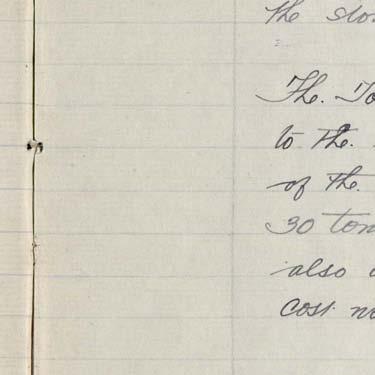 the
The. To
to the.
of the.
30 ton
also
cost no